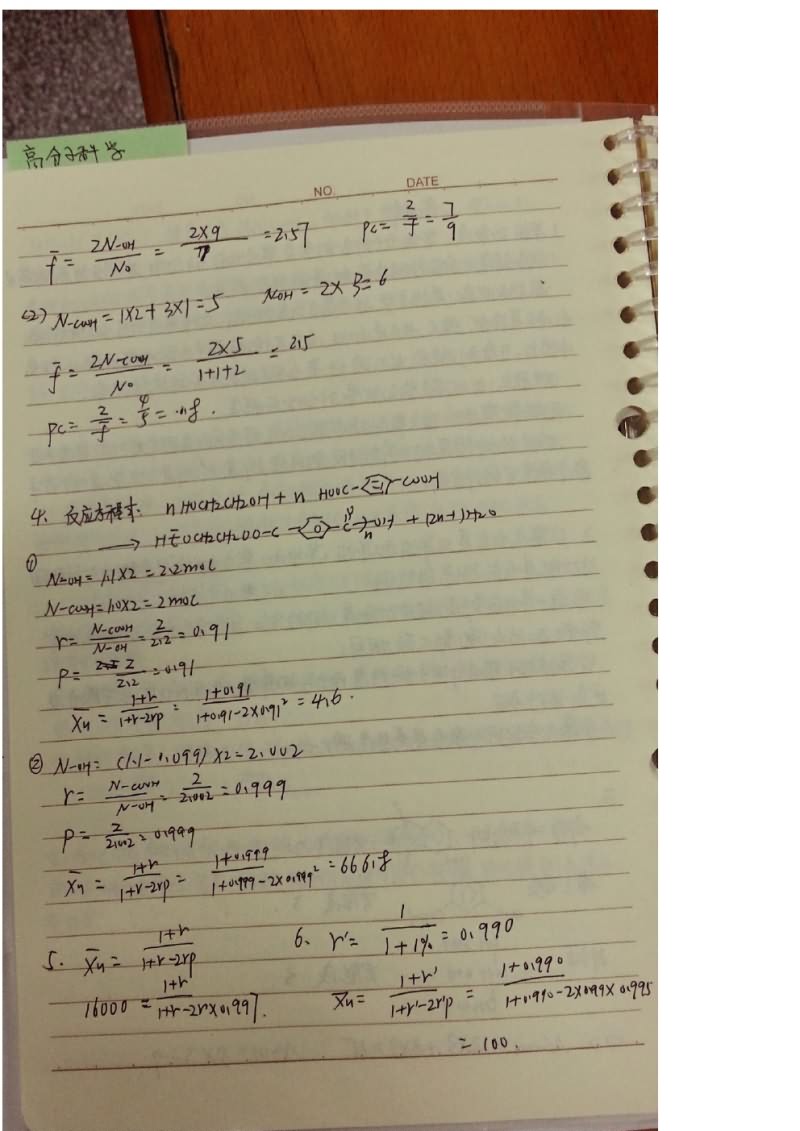 高分子科学
NO. DATE
f̄ = 2N-OH/N₀ = 2×9/7 = 2.57 pc = 2/f̄ = 7/9
(2) N-COOH = 1×2 + 3×1 = 5 NOH = 2×3 = 6
f̄ = 2N-COOH/N₀ = 2×5/(1+1+2) = 2.5
pc = 2/f̄ = 4/5 =
4. 反应方程式: n HOCH2CH2OH + n HOOC- -COOH
→ H[OCH2CH2OO-C- -C]n OH + (2n-1)H2O
① N-OH = 1.1×2 = 2.2mol
N-COOH = 1.0×2 = 2mol
r = N-COOH/N-OH = 2/2.2 = 0.91
P = 2/2.2 = 0.91
X̄n = (1+r)/(1+r-2rp) = (1+0.91)/(1+0.91-2×0.91²) = 4.6.
② N-OH = (1.1-0.099)×2 = 2.002
r = N-COOH/N-OH = 2/2.002 = 0.999
P = 2/2.002 = 0.999
X̄n = (1+r)/(1+r-2rp) = (1+0.999)/(1+0.999-2×0.999²) = 666.8
5. X̄n = (1+r)/(1+r-2rp) 6、 r' = 1/(1+1%) = 0.990
16000 = (1+r)/(1+r-2r×0.997). X̄n = (1+r')/(1+r'-2r'p) = (1+0.990)/(1+0.990-2×0.99×0.995)
= 100.